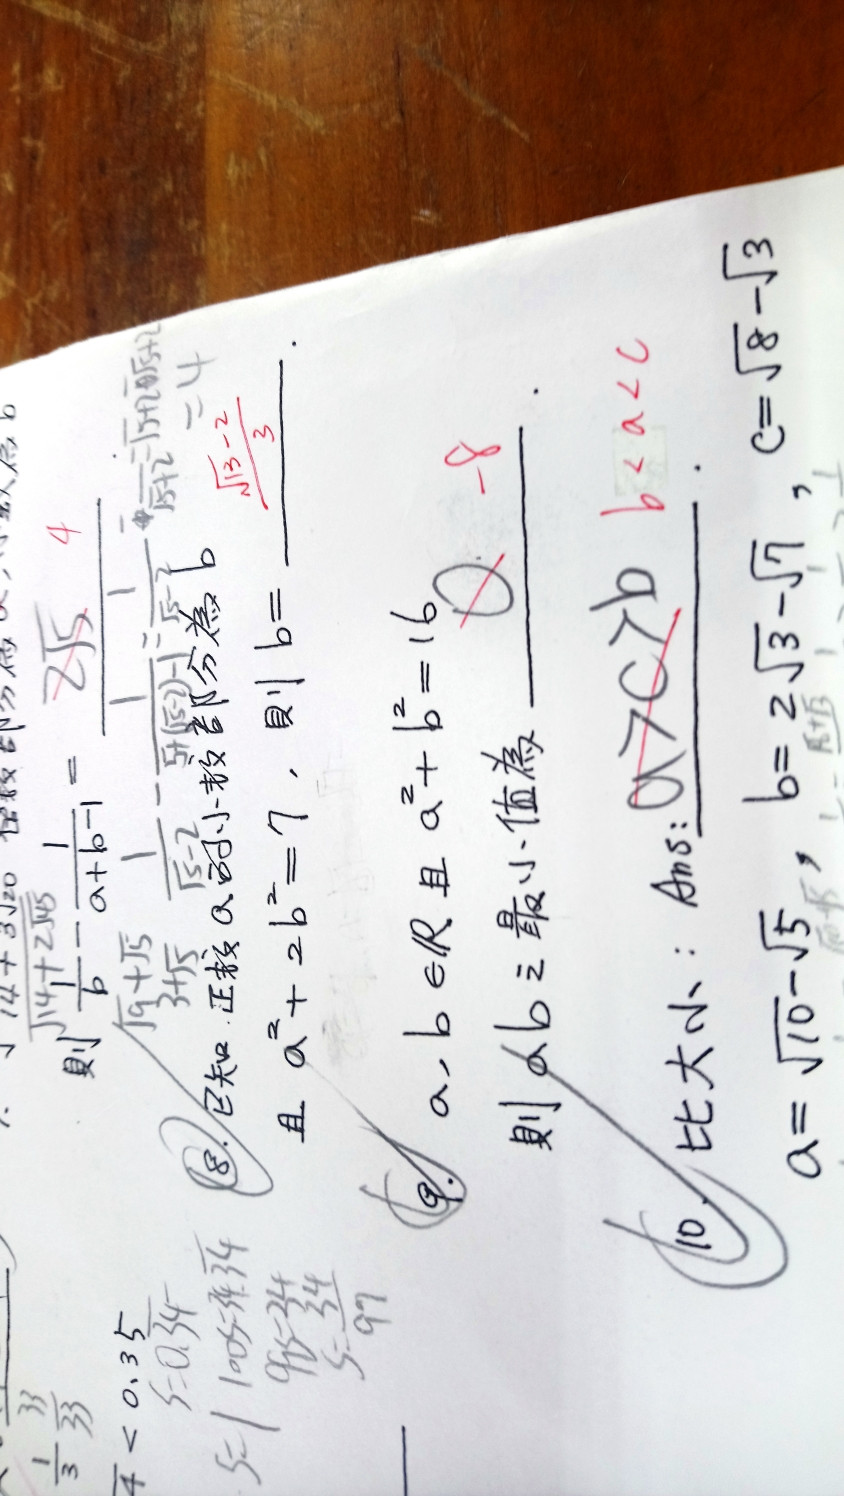 √14+3√20 整數部分為a, 小數為b
√14+2√45
則 1/b - 1/(a+b-1) = 2√5 4
√9+√5
3+√5
1/(√5-2) - 1/(5+(√5-2)-1)
= 4
8. 已知 正數a的小數部分為b
且 a²+2b²=7, 則 b= (√13-2)/3
9. a, b∈R 且 a²+b²=16
則 ab之最小值為 0 -8
10. 比大小: Ans: a>c>b b<a<c
a=√10-√5, b=2√3-√7, c=√8-√3
1/3 33/33
4 < 0.35
S=0.34
S=1 100S=34.34
99S=34
S=34/99